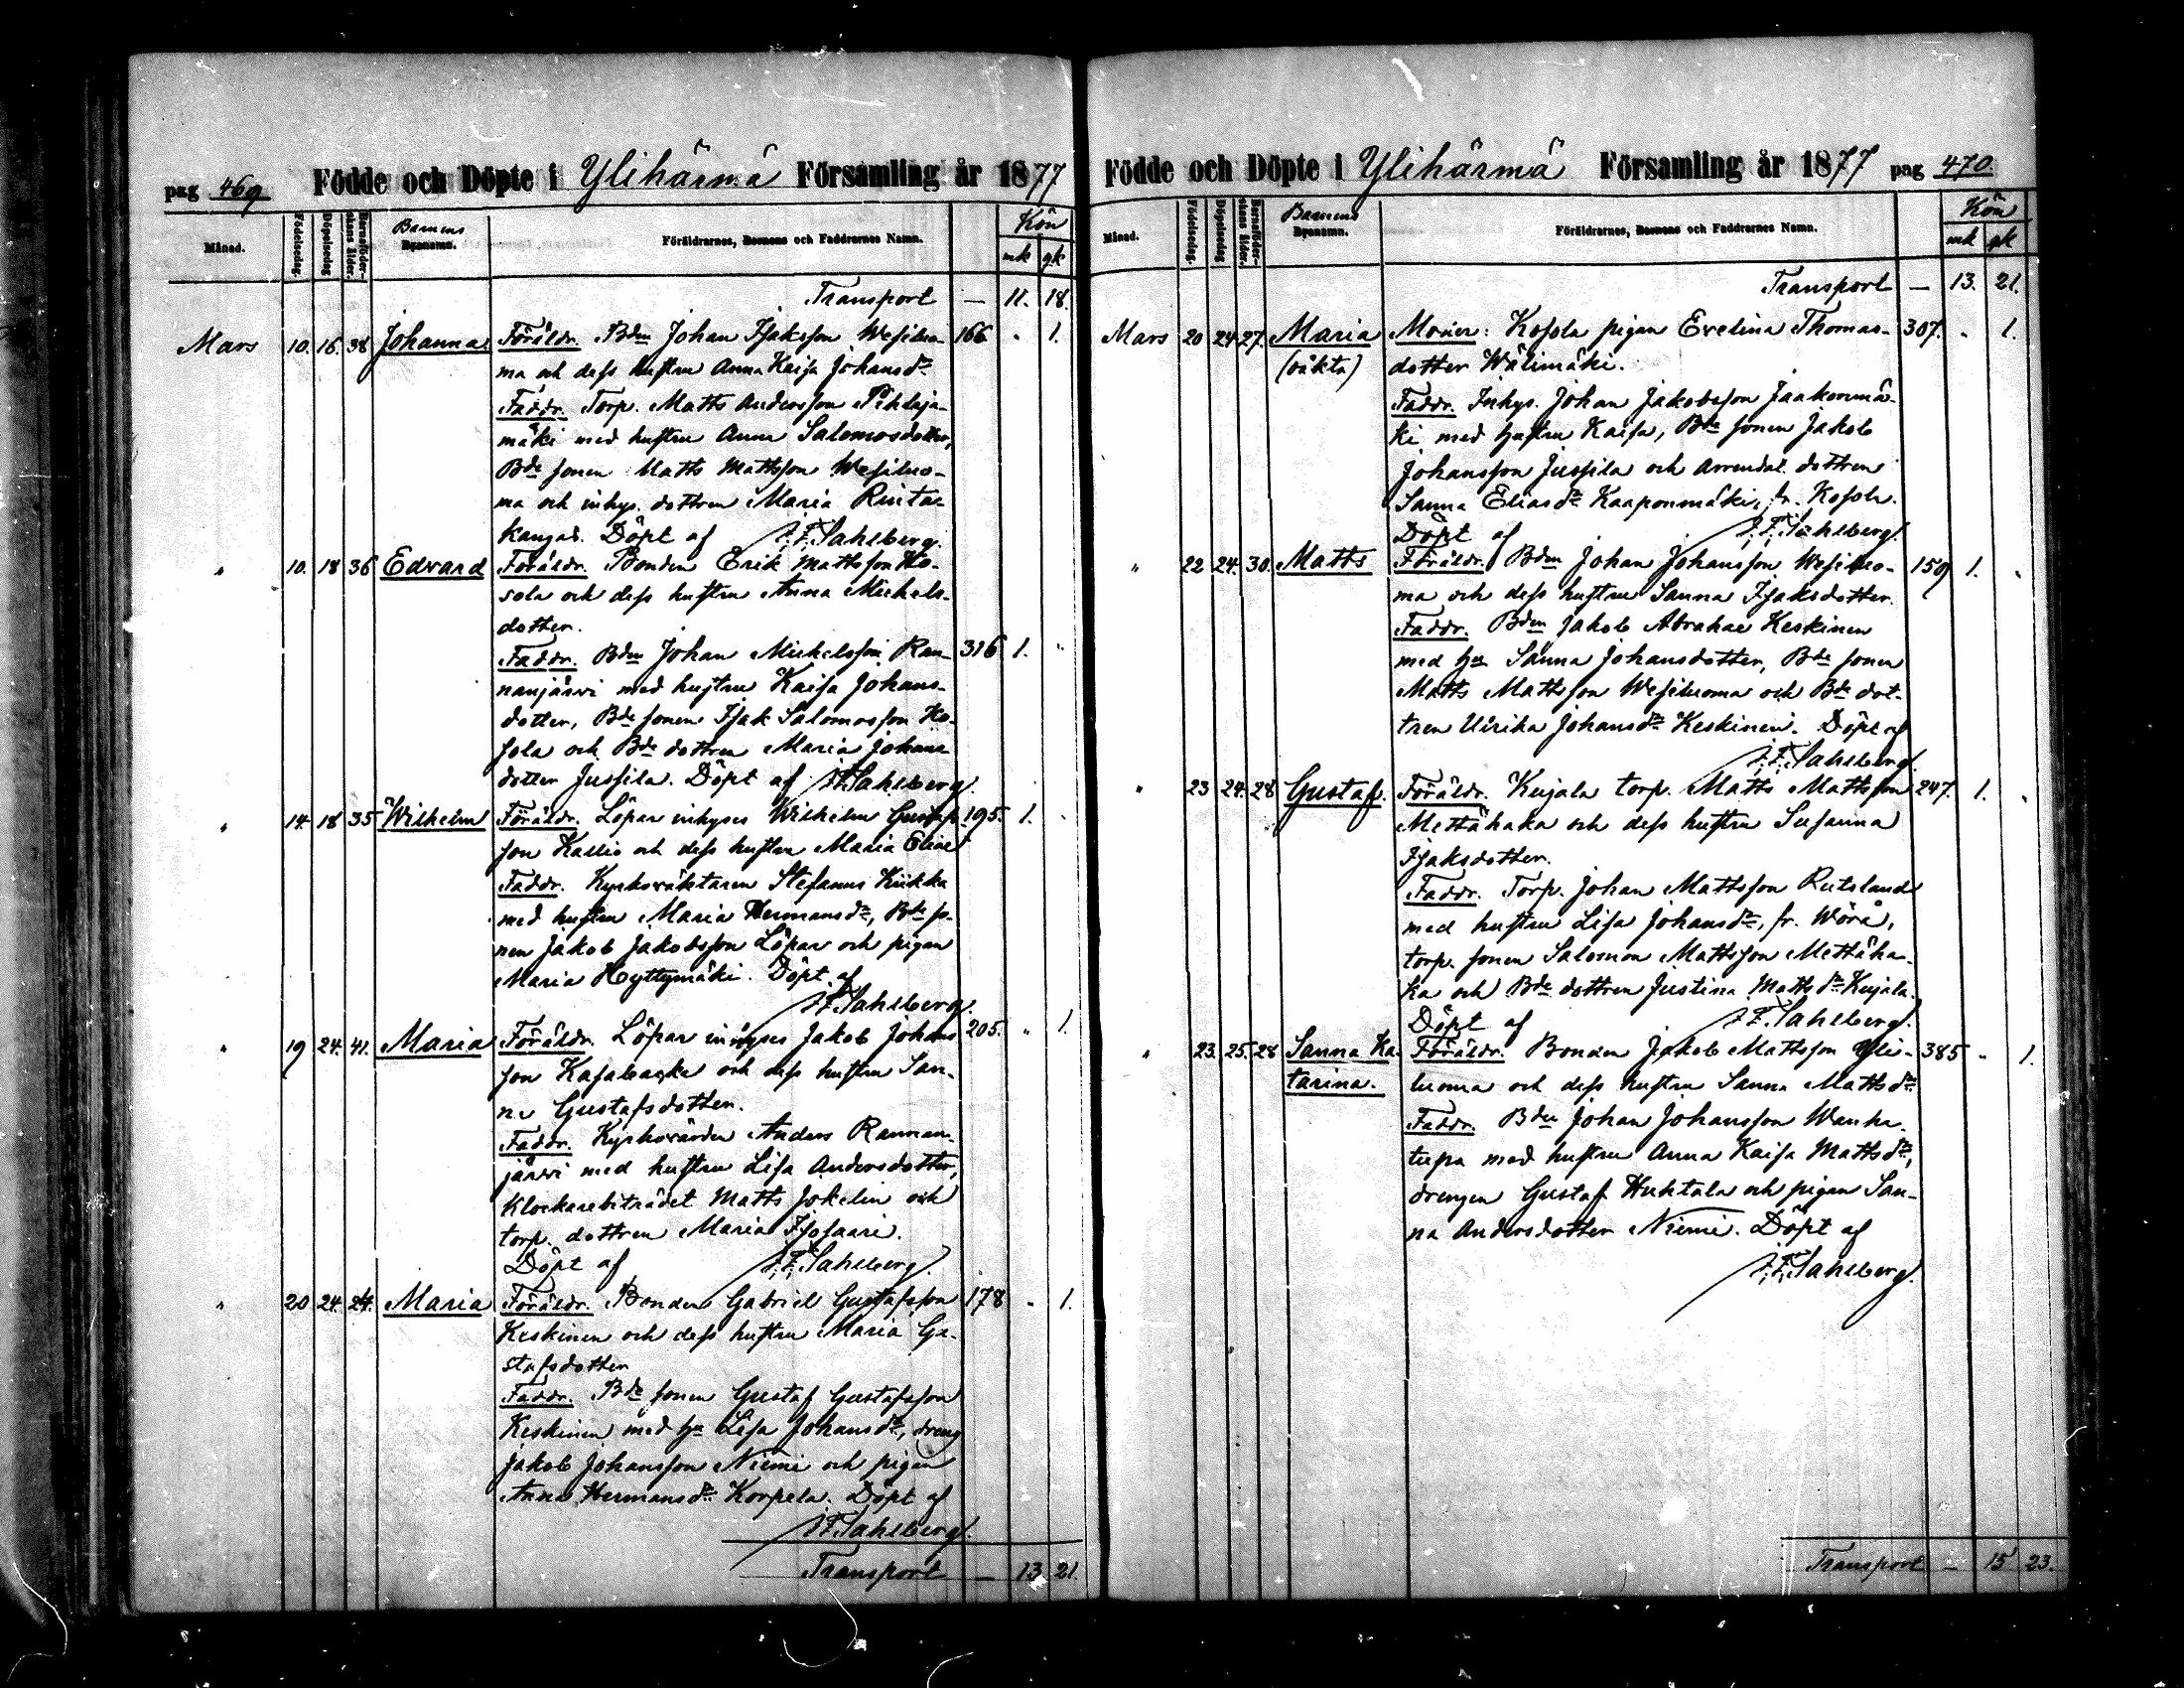 pag 469 Födde och Döpte i Ylihärmä Församling år 1877
Månad. Födelsedag. Döpelsedag Barnaföderskans ålder. Barnens Byanamn. Föräldrarnes, Barnens och Faddrarnes Namn. Kön
mk qk
Transport — 11. 18.
Mars 10. 16. 38 Johanna Föräldr. Bdm Johan Isaksson Wesiluo- 166 " 1.
ma och dess hustru Anna Kaisa Johansdr
Faddr. Torp. Matts Andersson Pihlaja-
mäki med hustru Anna Salomosdotter,
Bde sonen Matts Mattsson Wesiluo-
ma och inhys. dottren Maria Rinta-
kangas. Döpt af J.F. Sahlberg.
" 10. 18 36 Edvard Föräldr. Bonden Erik Mattsson Ko-
sola och dess hustru Anna Michels-
dotter.
Faddr. Bdm Johan Michelsson Ran- 316 1. "
nanjärvi med hustru Kaisa Johans-
dotter, Bde sonen Isak Salomosson Ko-
sola och Bde dottren Maria Johans-
dotter Jussila. Döpt af J.F. Sahlberg.
" 14. 18 35 Wilhelm Föräldr. Löpar inhyses Wilhelm Gustafs- 195. 1. "
son Kallio och dess hustru Maria Elias
Faddr. Kyrkoväktaren Stefanus Kiikka
med hustru Maria Hermansdr, Bde so-
nen Jakob Jakobsson Löpar och pigan
Maria Hyttymäki. Döpt af
J.F. Sahlberg.
" 19 24. 41. Maria Föräldr. Löpar inhyses Jakob Johans 205. " 1.
son Kasabacka och dess hustru San-
na Gustafsdotter.
Faddr. Kyrkovärden Anders Rannan-
järvi med hustru Lisa Andersdotter,
Klockarebiträdet Matts Jokelin och
torp. dottren Maria Isosaari.
Döpt af J.F. Sahlberg.
" 20 24. 24. Maria Föräldr. Bonden Gabriel Gustafsson 178 " 1.
Keskinen och dess hustru Maria Gu-
stafsdotter
Faddr. Bde sonen Gustaf Gustafsson
Keskinen med hu Lisa Johansdr, dreng
Jakob Johansson Niemi och pigan
Anna Hermansdr Korpela. Döpt af
J.F. Sahlberg.
Transport — 13 21.
Födde och Döpte i Ylihärmä Församling år 1877 pag 470.
Månad. Födelsedag. Döpelsedag Barnaföderskans ålder. Barnens Byanamn. Föräldrarnes, Barnens och Faddrarnes Namn. Kön
mk qk
Transport — 13. 21.
Mars 20 24 27. Maria Moder: Kosola pigan Evelina Thomas- 307. " 1.
(oäkta) dotter Wälimäki.
Faddr. Inhys. Johan Jakobsson Jaakonmä-
ki med hustru Kaisa, Bde sonen Jakob
Johansson Jussila och arrendat. dottren
Sanna Eliasdr Kaaponmäki, fr. Kosola.
Döpt af J.F. Sahlberg.
" 22 24. 30. Matts Föräldr. Bdm Johan Johansson Wesiluo- 159 1. "
ma och dess hustru Sanna Isaksdotter.
Faddr. Bdm Jakob Abraham Keskinen
med hu Sanna Johansdotter, Bde sonen
Matts Mattsson Wesiluoma och Bde dot-
tren Ulrika Johansdr Keskinen. Döpt af
J.F. Sahlberg.
" 23 24. 28 Gustaf. Föräldr. Kujala torp. Matts Mattsson 247. 1. "
Mettähaka och dess hustru Susanna
Isaksdotter.
Faddr. Torp. Johan Mattsson Rutsland
med hustru Lisa Johansdr, fr. Wörå,
torp. sonen Salomon Mattsson Mettäha-
ka och Bde dottren Justina Mattsdr Kujala.
Döpt af J.F. Sahlberg.
" 23. 25. 28 Sanna Ka- Föräldr. Bonden Jakob Mattsson Yli- 385 " 1.
tarina. luoma och dess hustru Sanna Mattsdr
Faddr. Bdn Johan Johansson Wanha-
tupa med hustru Anna Kaisa Mattsdr,
drengen Gustaf Huhtala och pigan San-
na Andersdotter Niemi. Döpt af
J.F. Sahlberg.
Transport — 15 23.